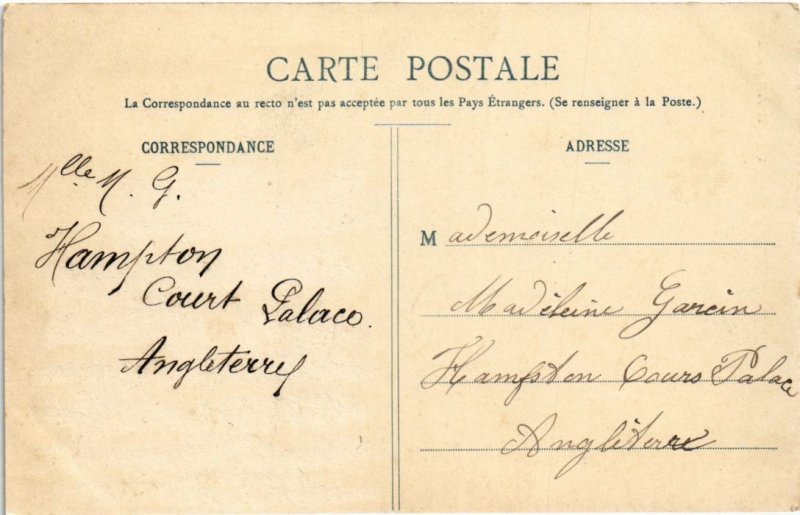 CARTE POSTALE
La Correspondance au recto n'est pas acceptée par tous les Pays Étrangers. (Se renseigner à la Poste.)
CORRESPONDANCE
Mlle M. G.
Hampton
Court Palace.
Angleterre
ADRESSE
Mademoiselle
Madeleine Garcin
Hampton Cours Palace
Angleterre